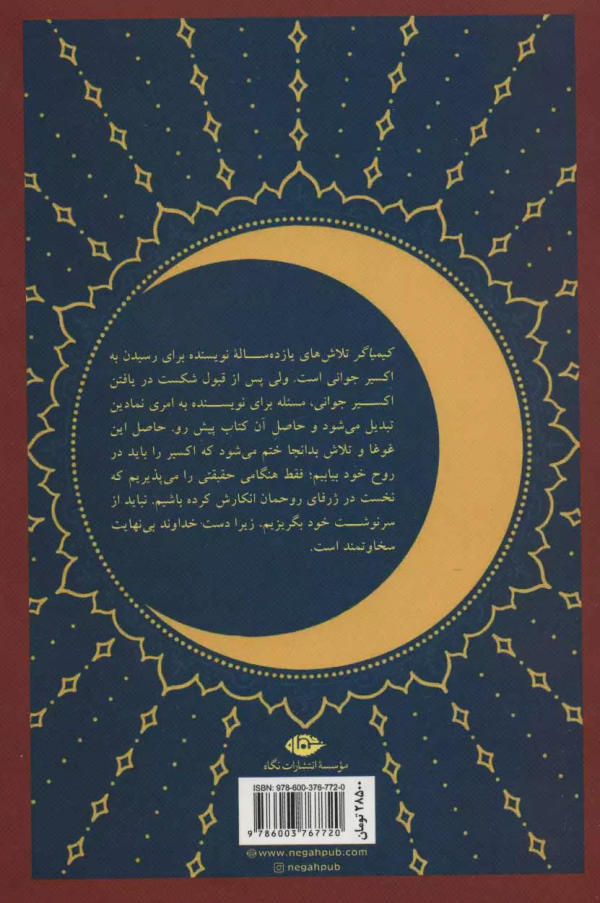 کیمیاگر تلاش‌های یازده‌سالهٔ نویسنده برای رسیدن به
اکسیر جوانی است. ولی پس از قبول شکست در یافتن
اکسیر جوانی، مسئله برای نویسنده به امری نمادین
تبدیل می‌شود و حاصل آن کتاب پیش رو. حاصل این
غوغا و تلاش بدانجا ختم می‌شود که اکسیر را باید در
روح خود بیابیم؛ فقط هنگامی حقیقتی را می‌پذیریم که
نخست در ژرفای روحمان انکارش کرده باشیم. نباید از
سرنوشت خود بگریزیم، زیرا دست خداوند بی‌نهایت
سخاوتمند است.
نگاه
مؤسسهٔ انتشارات نگاه
ISBN: 978-600-376-772-0
9 786003 767720
۲۸۵۰۰ تومان
www.negahpub.com
negahpub